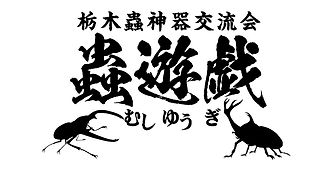 栃木蟲神器交流会
蟲遊戯
むしゆうぎ